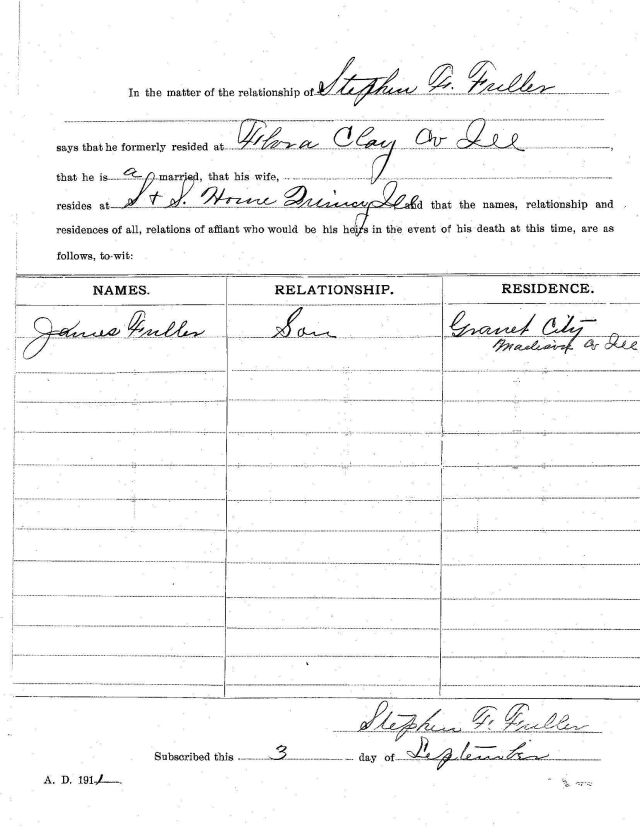 In the matter of the relationship of Stephen F. Fuller
says that he formerly resided at Flora Clay Co Ill,
that he is a married, that his wife,
resides at S + S. Home Quincy Ill and that the names, relationship and
residences of all, relations of affiant who would be his heirs in the event of his death at this time, are as
follows, to-wit:
NAMES. RELATIONSHIP. RESIDENCE.
James Fuller Son Granet City
Madison Co Ill
Stephen F. Fuller
Subscribed this 3 day of September
A. D. 1911